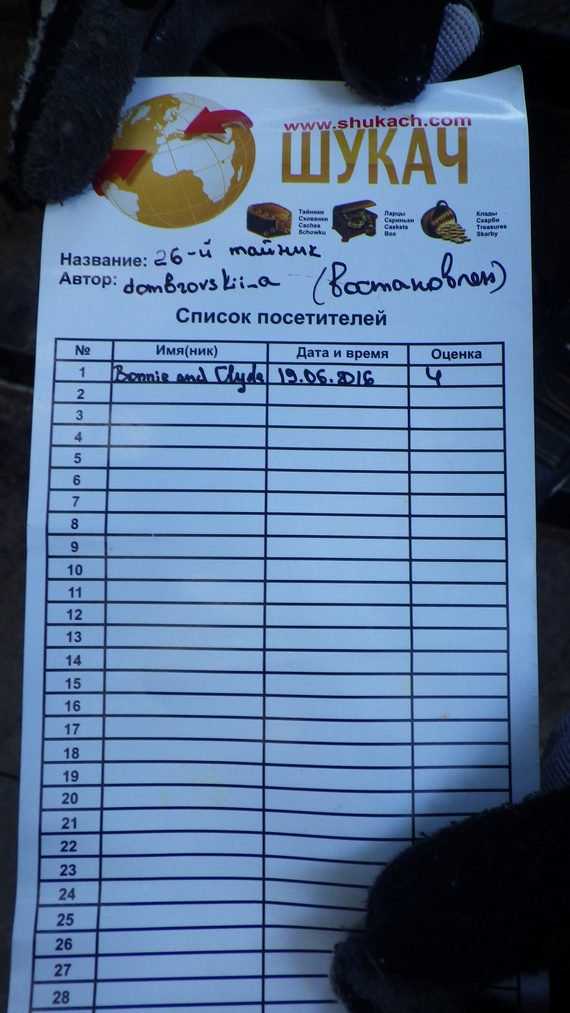 www.shukach.com
ШУКАЧ
Тайники
Схованки
Caches
Schowku
Ларцы
Скриньки
Caskets
Box
Клады
Скарби
Treasures
Skarby
Название: 26-й тайник
Автор: dombrovskii_a (востановлен)
Список посетителей
№ Имя(ник) Дата и время Оценка
1 Bonnie and Clyde 19.06.2016 4
2
3
4
5
6
7
8
9
10
11
12
13
14
15
16
17
18
19
20
21
22
23
24
25
26
27
28